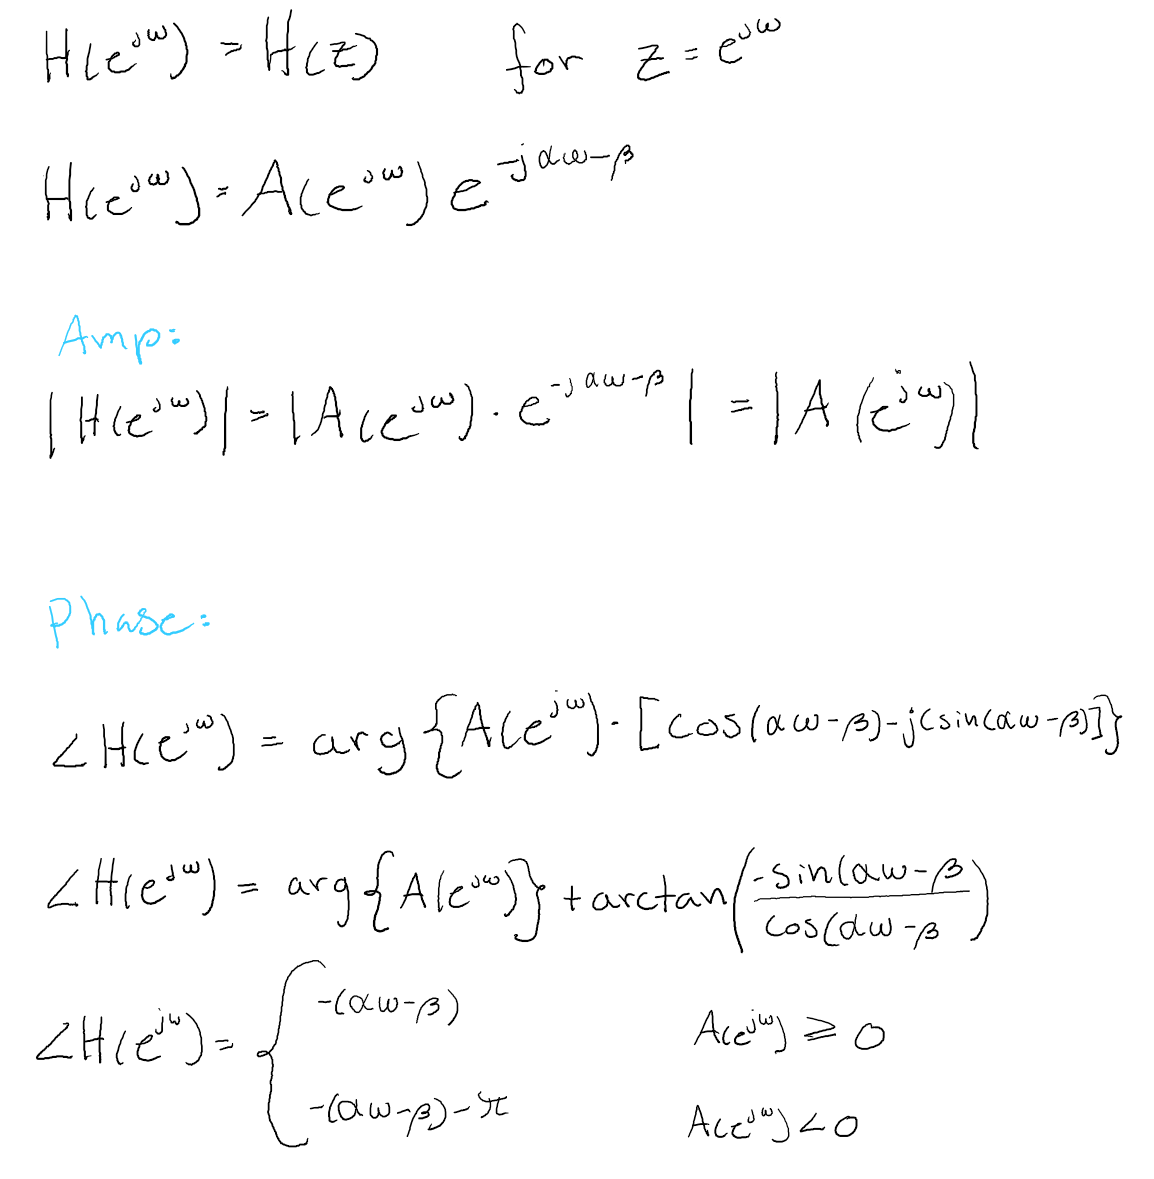 H(e^{jω}) = H(z) for z = e^{jω}
H(e^{jω}) = A(e^{jω}) e^{-jαω-β}
Amp:
|H(e^{jω})| = |A(e^{jω}) · e^{-jαω-β}| = |A(e^{jω})|
Phase:
∠H(e^{jω}) = arg{A(e^{jω}) · [cos(αω-β)-j(sin(αω-β)]}
∠H(e^{jω}) = arg{A(e^{jω})} + arctan(-sin(αω-β / cos(αω-β)
∠H(e^{jω}) = { -(αω-β) A(e^{jω}) ≥ 0
-(αω-β)-π A(e^{jω}) < 0